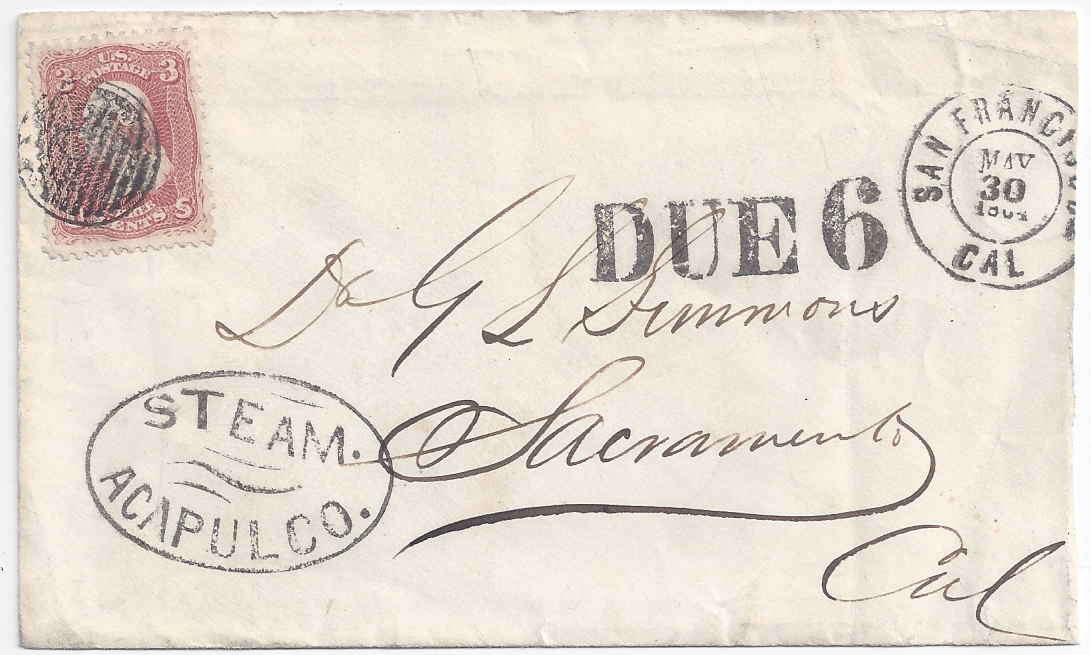 3 U.S. 3
POSTAGE
CENTS S
SAN FRANCISCO
MAY
30
CAL
DUE 6
Dr G L Simmons
STEAM.
ACAPULCO.
Sacramento
Cal